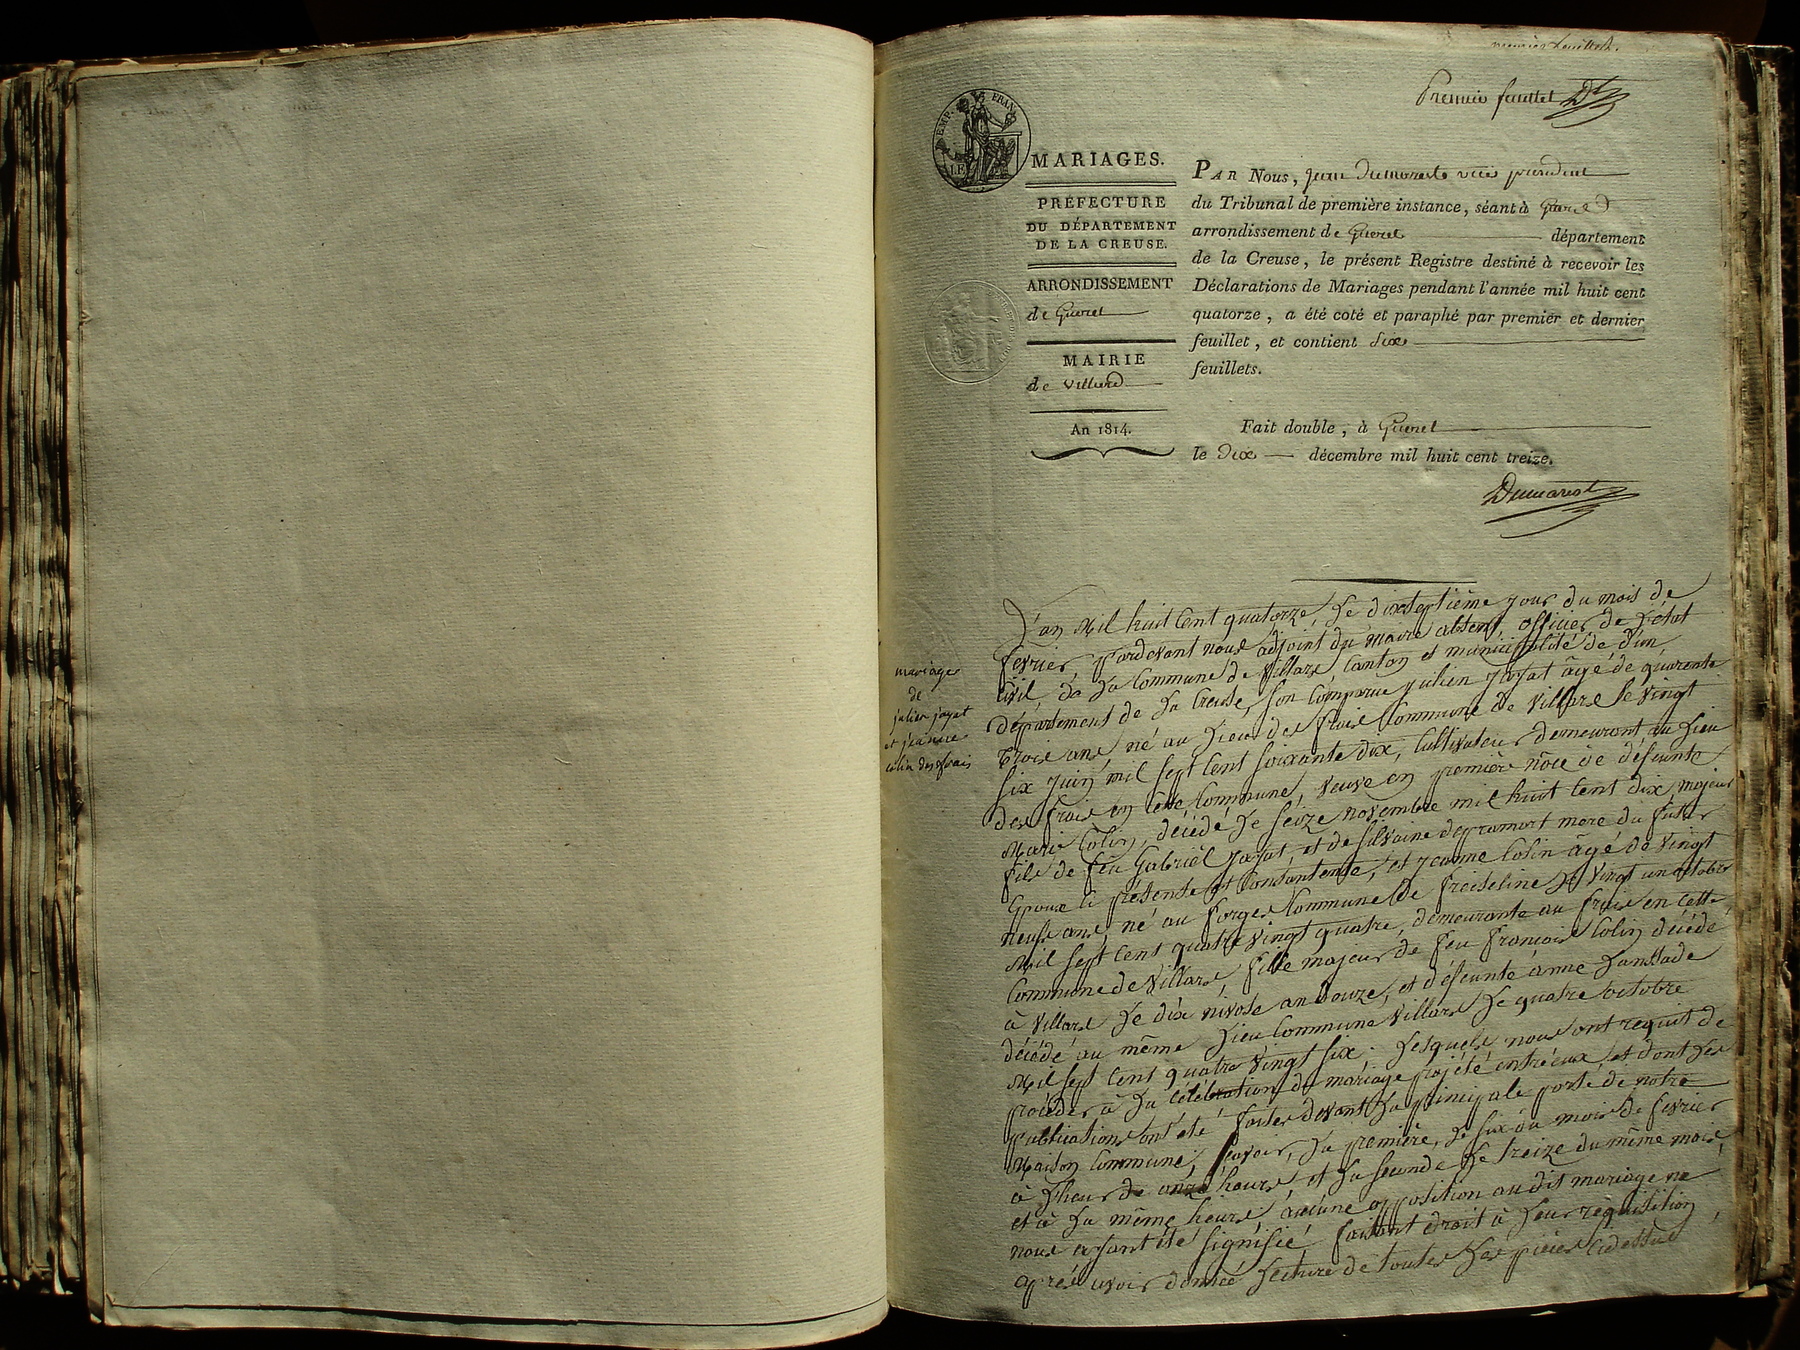 Premier feuillet
EMP. FRAN.
MARIAGES.
PRÉFECTURE
DU DÉPARTEMENT
DE LA CREUSE.
ARRONDISSEMENT
de Gueret
MAIRIE
de Villard
An 1814.
PAR Nous, Jean Dumarest vice president
du Tribunal de première instance, séant à Gueret
arrondissement de Gueret département
de la Creuse, le présent Registre destiné à recevoir les
Déclarations de Mariages pendant l'année mil huit cent
quatorze, a été coté et paraphé par premier et dernier
feuillet, et contient dix
feuillets.
Fait double, à Gueret
le dix décembre mil huit cent treize.
Dumarest
mariage
de
julien jayat
et jeanne
colin des frais
L'an Mil huit Cent quatorze, Le dixseptième jour du mois de
fevrier, pardevant nous adjoint du maire absent, officier de L'état
Civil, de La Commune de Villard, Canton et municipalité de Dun,
département de La Creuse, son Comparue julien jayat âgé de quarente
trois ans, né au Lieu des frais Commune de Villard le vingt
six juin mil sept Cent soixante dix, Cultivateur demeurant au Lieu
des frais en cette Commune, veuve en première nôce de défeunte
Marie Colin, décédé Le seize novembre mil huit Cent dix, majeur
fils de feu Gabriël jayat, et de silvaine depramort mere du futur
Epoux ci présente et Consantente, et jeanne Colin âgé de vingt
neuf ans, né au forges Commune de fraiseline Le vingt un octobre
Mil sept Cent quatre vingt quatre, demeurante au frais en cette
Commune de Villard, fille majeur de feu francois Colin décédé
à Villard Le dix nivose an douze, et défeunté anne Lanstade
décédé au même Lieu Commune Villard Le quatre octobre
Mil sept Cent quatre vingt six. Lesquels nous ont requit de
procéder à La célébration du mariage projété entréeux et dont Les
publications ont été faites devant La principale porté de notre
Maison Commune; savoir, La première, Le six du mois de fevrier
à L'heur de onze heurs, et La seconde Le treize du même mois,
et à La même heure, aucune opposition audit mariage ne
nous ayant été signifié, faisant droit à Leur requisition,
après avoir donneé Lecture de toutes Les pièces Cidessus